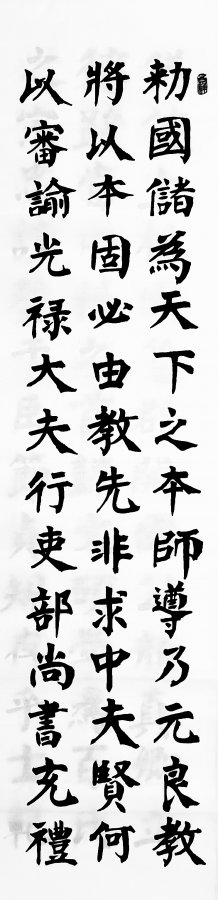 勅國儲為天下之本師導乃元良教
將以本固必由教先非求中夫賢何
以審諭光禄大夫行吏部尚書充禮